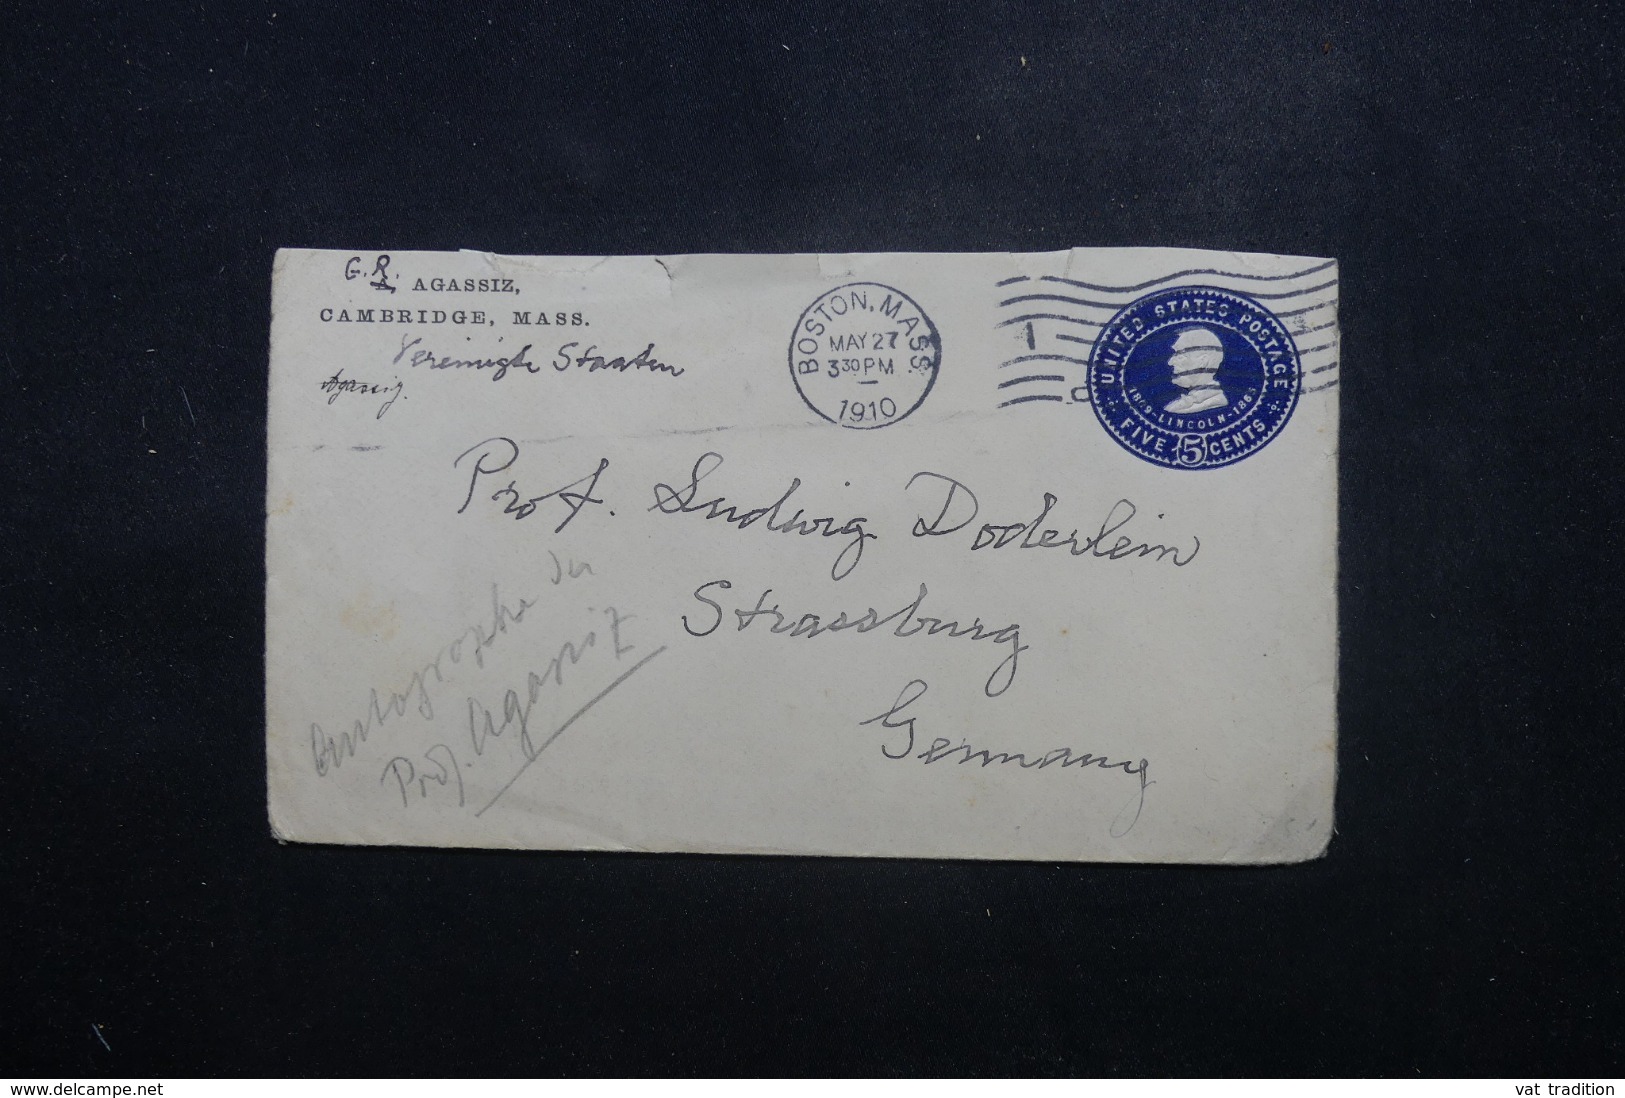 G. R. A. AGASSIZ,
CAMBRIDGE, MASS.
Vereinigte Staaten
Agassiz.
BOSTON, MASS.
MAY 27
3 30 PM
1910
1
UNITED STATES POSTAGE
1809-LINCOLN-1865
FIVE 5 CENTS
Prof. Ludwig Doderlein
Strassburg
Germany
Autographe du
Prof. Agassiz
www.delcampe.net
vat tradition